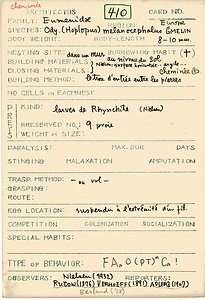 cheminée
ARCHITECT CARD NO.
410
FAMILY: Eumenidae REGION: Europe
SPECIES: Ody. (Hoplopus) melanocephalus GMELIN
BODY WEIGHT: BODY-LENGTH 8-10 mm.
NESTING SITE: dans un mur BORROWING HABIT (+)
BUILDING MATERIALS: au niveau du sol
CLOSING MATERIALS: cheminée
BUILDING METHOD: entre les pierres
NO. CELLS IN EACH NEST
PREY
KIND: larves de Rhynchite (Nielsen)
PRESERVED NO: 9 proie
WEIGHT or SIZE:
PARALYSIS: MAX. DUR DAYS
STINGING MALAXATION AMPUTATION
TRASP. METHOD: - au vol -
GRASPING:
ROUTE:
EGG LOCATION: suspendu à l'extrémité du fil.
COMPETITION COLONIZATION SOCIALIZATION
SPECIAL HABITS:
TYPE OF BEHAVIOR:
OBSERVERS: Nielsen (1932) REPORTERS:
RUDOW (1896) VERHOEFF (1891) ADLERZ (1907)
Berland ('28)